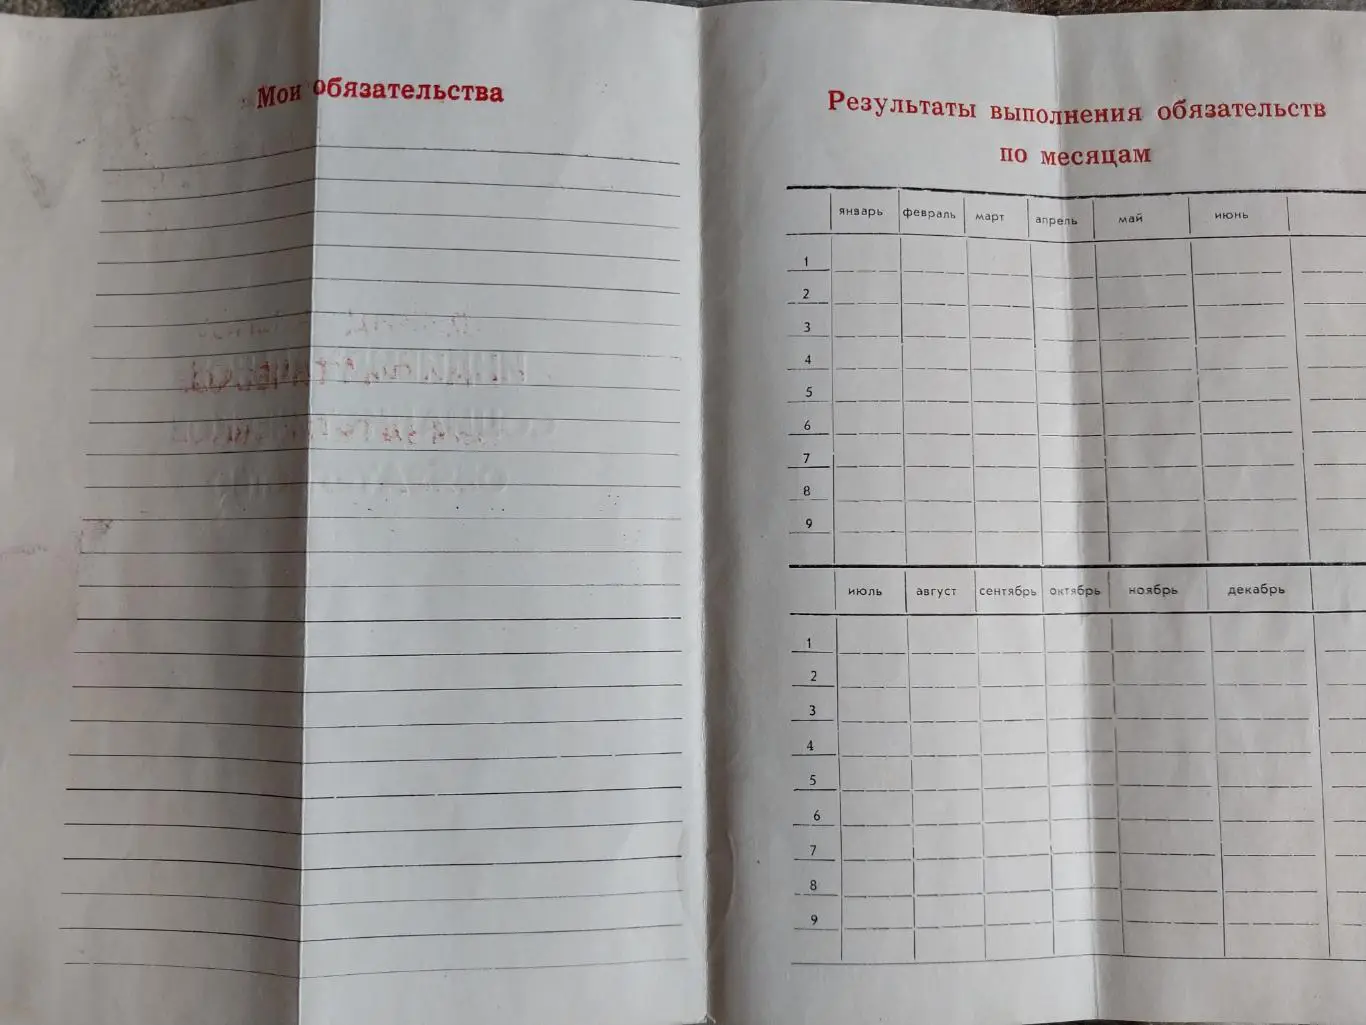 Мои обязательства
Результаты выполнения обязательств
по месяцам
январь февраль март апрель май июнь
1
2
3
4
5
6
7
8
9
июль август сентябрь октябрь ноябрь декабрь
1
2
3
4
5
6
7
8
9